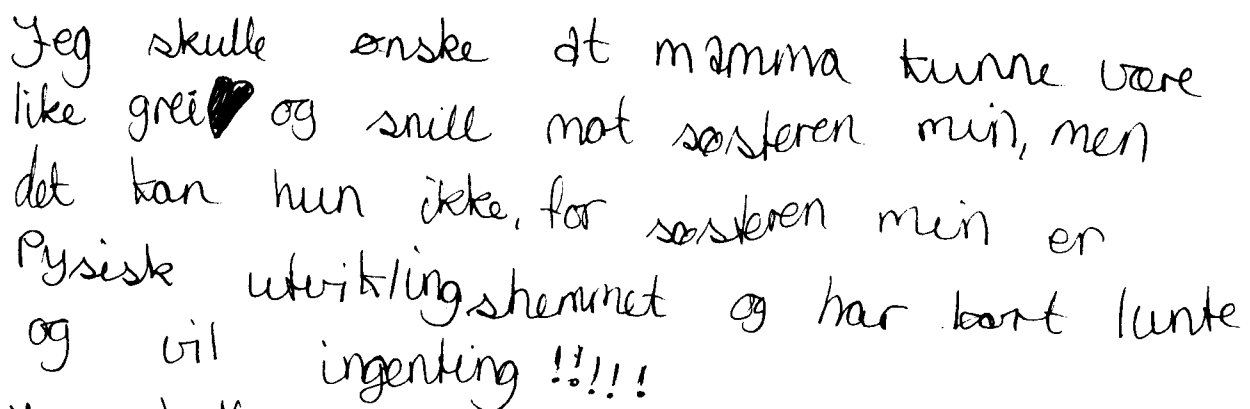 Jeg skulle ønske at mamma kunne være
like grei og snill mot søsteren min, men
det kan hun ikke, for søsteren min er
Pysisk utviklingshemmet og har kort lunte
og vil ingenting !!!!!